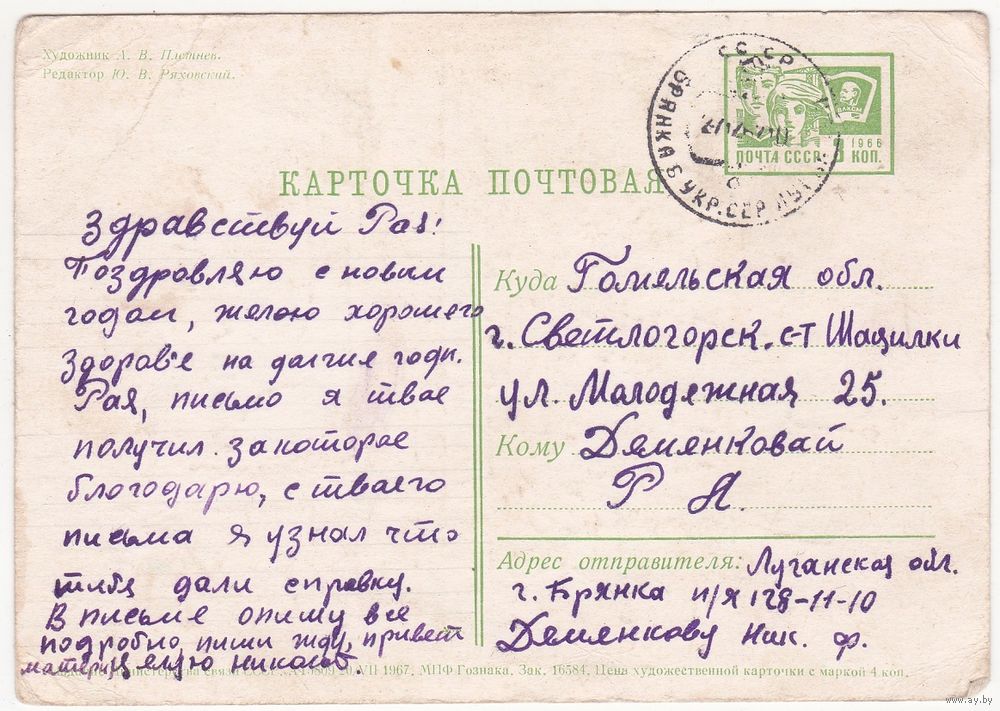 Художник А. В. Плетнев.
Редактор Ю. В. Ряховский.
СССР
БРЯНКА 9 УКР.ССР
ВЛКСМ
1966
ПОЧТА СССР КОП.
КАРТОЧКА ПОЧТОВАЯ
Здравствуй Рая!
Поздровляю с новим
годом, желою хорошего
здоровʼе на долгие годы.
Рая, письмо я твое
получил за которое
блогодарю, с тваего
письма я узнал что
тибе дали справку.
В письме опишу все
подробно, пиши жду, привет
матери целую николай.
Куда Гомельская обл.
г. Светлогорск. с-т Шацилки
ул. Молодежная 25.
Кому Деменковай
Р А.
Адрес отправителя: Луганская обл.
г. Брянка п/я 128-11-10
Деменкову Ник. ф.
Министерства связи СССР. VII 1967. МПФ Гознака. Зак. 16584. Цена художественной карточки с маркой 4 коп.
www.ay.by